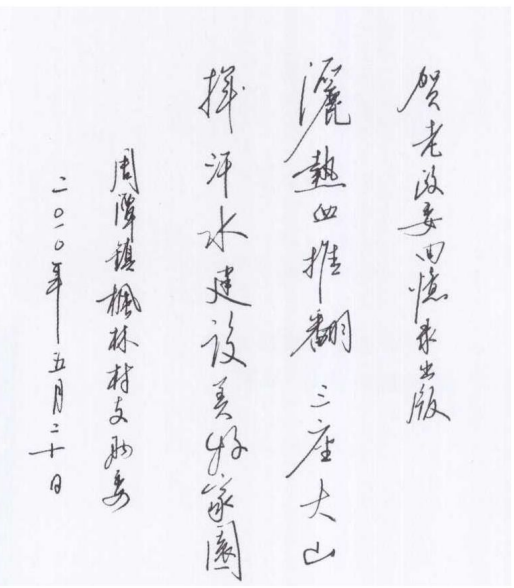 贺老政委回憶录出版
灑熱血推翻三座大山
挥汗水建设美好家園
周潭镇楓林村支两委
二〇一〇年五月二十日